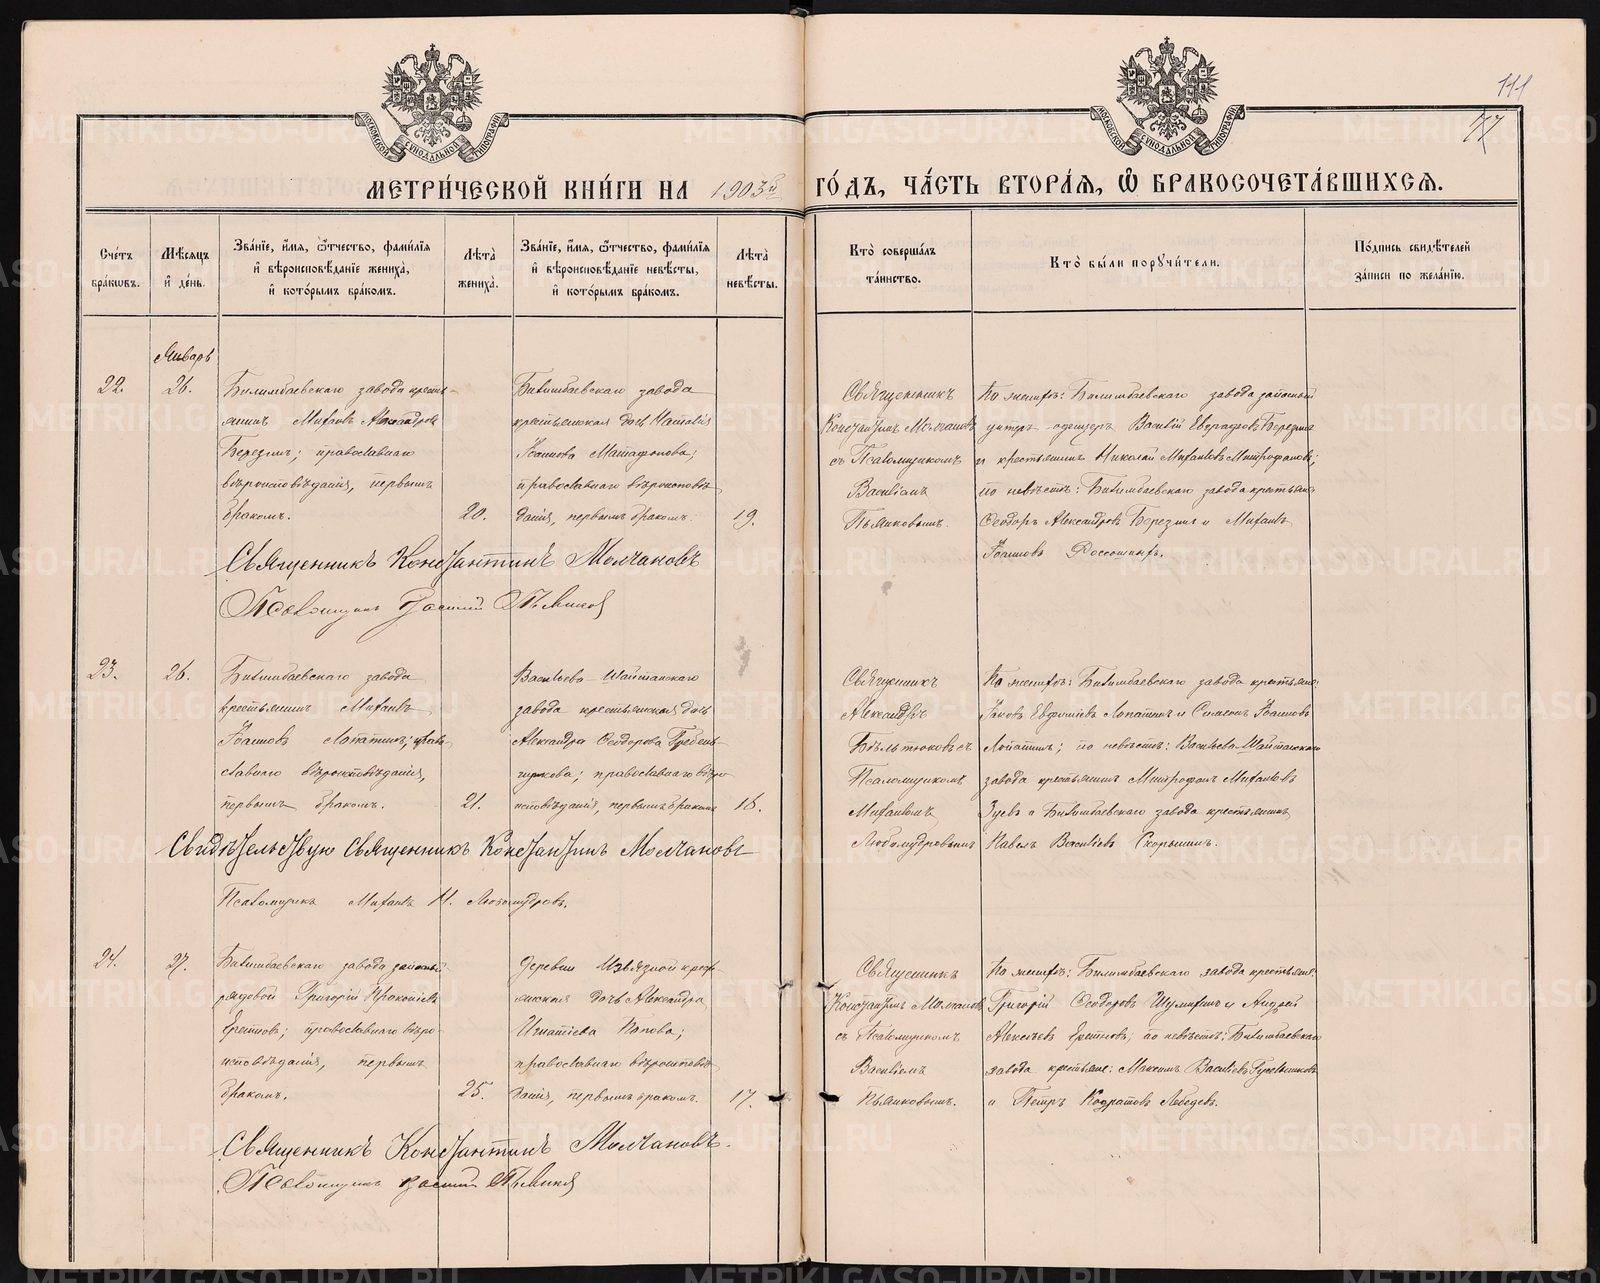 111
77
МОСКОВСКОЙ СѴНОДАЛЬНОЙ ТИПОГРАФІИ
МОСКОВСКОЙ СѴНОДАЛЬНОЙ ТИПОГРАФІИ
МЕТРИ́ЧЕСКОЙ КНИ́ГИ НА 1903й ГО́ДЪ, ЧА́СТЬ ВТОРА́Я, Ѡ БРАКОСОЧЕТА́ВШИХСЯ.
Сче́тъ бра́кѡвъ.
Мѣ́сяцъ и҆ де́нь.
Зва́нїе, и҆́мя, ѻ҆́тчество, фами́лїя и҆ вѣроисповѣ́данїе жениха̀, и҆ кото́рымъ бра́комъ.
Лѣ́та жениха̀.
Зва́нїе, и҆́мя, ѻ҆́тчество, фами́лїя и҆ вѣроисповѣ́данїе невѣ́сты, и҆ кото́рымъ бра́комъ.
Лѣ́та невѣ́сты.
Кто̀ соверша́лъ та́инство.
Кто̀ бы́ли порꙋчи́тели.
По́дпись свидѣ́телей за́писи по жела́нїю.
Январь
22.
26.
Билимбаевскаго завода кресть-
янинъ Михаилъ Александровъ
Березинъ; православнаго
вѣроисповѣданія, первымъ
бракомъ.
20.
Билимбаевскаго завода
крестьянская дочь Наталія
Іоаннова Матафонова;
православнаго вѣроисповѣ-
данія, первымъ бракомъ.
19.
Священникъ
Константинъ Молчановъ
съ Псаломщикомъ
Василіемъ
Пьянковымъ.
По женихѣ: Билимбаевскаго завода запасный
унтеръ-офицеръ Василій Евграфовъ Березинъ
и крестьянинъ Николай Михаиловъ Митрофановъ;
по невѣстѣ: Билимбаевскаго завода крестьяне
Ѳеодоръ Александровъ Березинъ и Михаилъ
Іоанновъ
Священникъ Константинъ Молчановъ
Псаломщикъ Василій Пьянковъ
23.
26.
Билимбаевскаго завода
крестьянинъ Михаилъ
Іоанновъ Лопатинъ; право-
славнаго вѣроисповѣданія,
первымъ бракомъ.
21.
Васильево-Шайтанскаго
завода крестьянская дочь
Александра Ѳеодорова Гребень-
щикова; православнаго вѣро-
исповѣданія, первымъ бракомъ
16.
Священникъ
Александръ
Бѣльтюковъ съ
Псаломщикомъ
Михаиломъ
Любомудровымъ
По женихѣ: Билимбаевскаго завода крестьяне:
Іаковъ Евфиміевъ Лопатинъ и Симеонъ Іоанновъ
Лопатинъ; по невѣстѣ: Васильево-Шайтанскаго
завода крестьянинъ Митрофанъ Михаиловъ
Зуевъ и Билимбаевскаго завода крестьянинъ
Павелъ Васильевъ Скорынинъ.
Свидѣтельствую Священникъ Константинъ Молчановъ
Псаломщикъ Михаилъ Н. Любомудровъ.
24.
27.
Билимбаевскаго завода запасный
рядовой Григорій Прокопіевъ
Еретновъ; православнаго вѣро-
исповѣданія, первымъ
бракомъ.
25.
Деревни Извѣздной кресть-
янская дочь Александра
Игнатіева Попова;
православнаго вѣроисповѣ-
данія, первымъ бракомъ.
17.
Священникъ
Константинъ Молчановъ
съ Псаломщикомъ
Василіемъ
Пьянковымъ.
По женихѣ: Билимбаевскаго завода крестьяне:
Григорій Ѳеодоровъ Шумихинъ и Андрей
Алексѣевъ Еретновъ; по невѣстѣ: Билимбаевскаго
завода крестьяне: Максимъ Васильевъ
и Петръ Кодратовъ Лебедевъ.
Священникъ Константинъ Молчановъ.
Псаломщикъ Василій Пьянковъ
METRIKI.GASO-URAL.RU